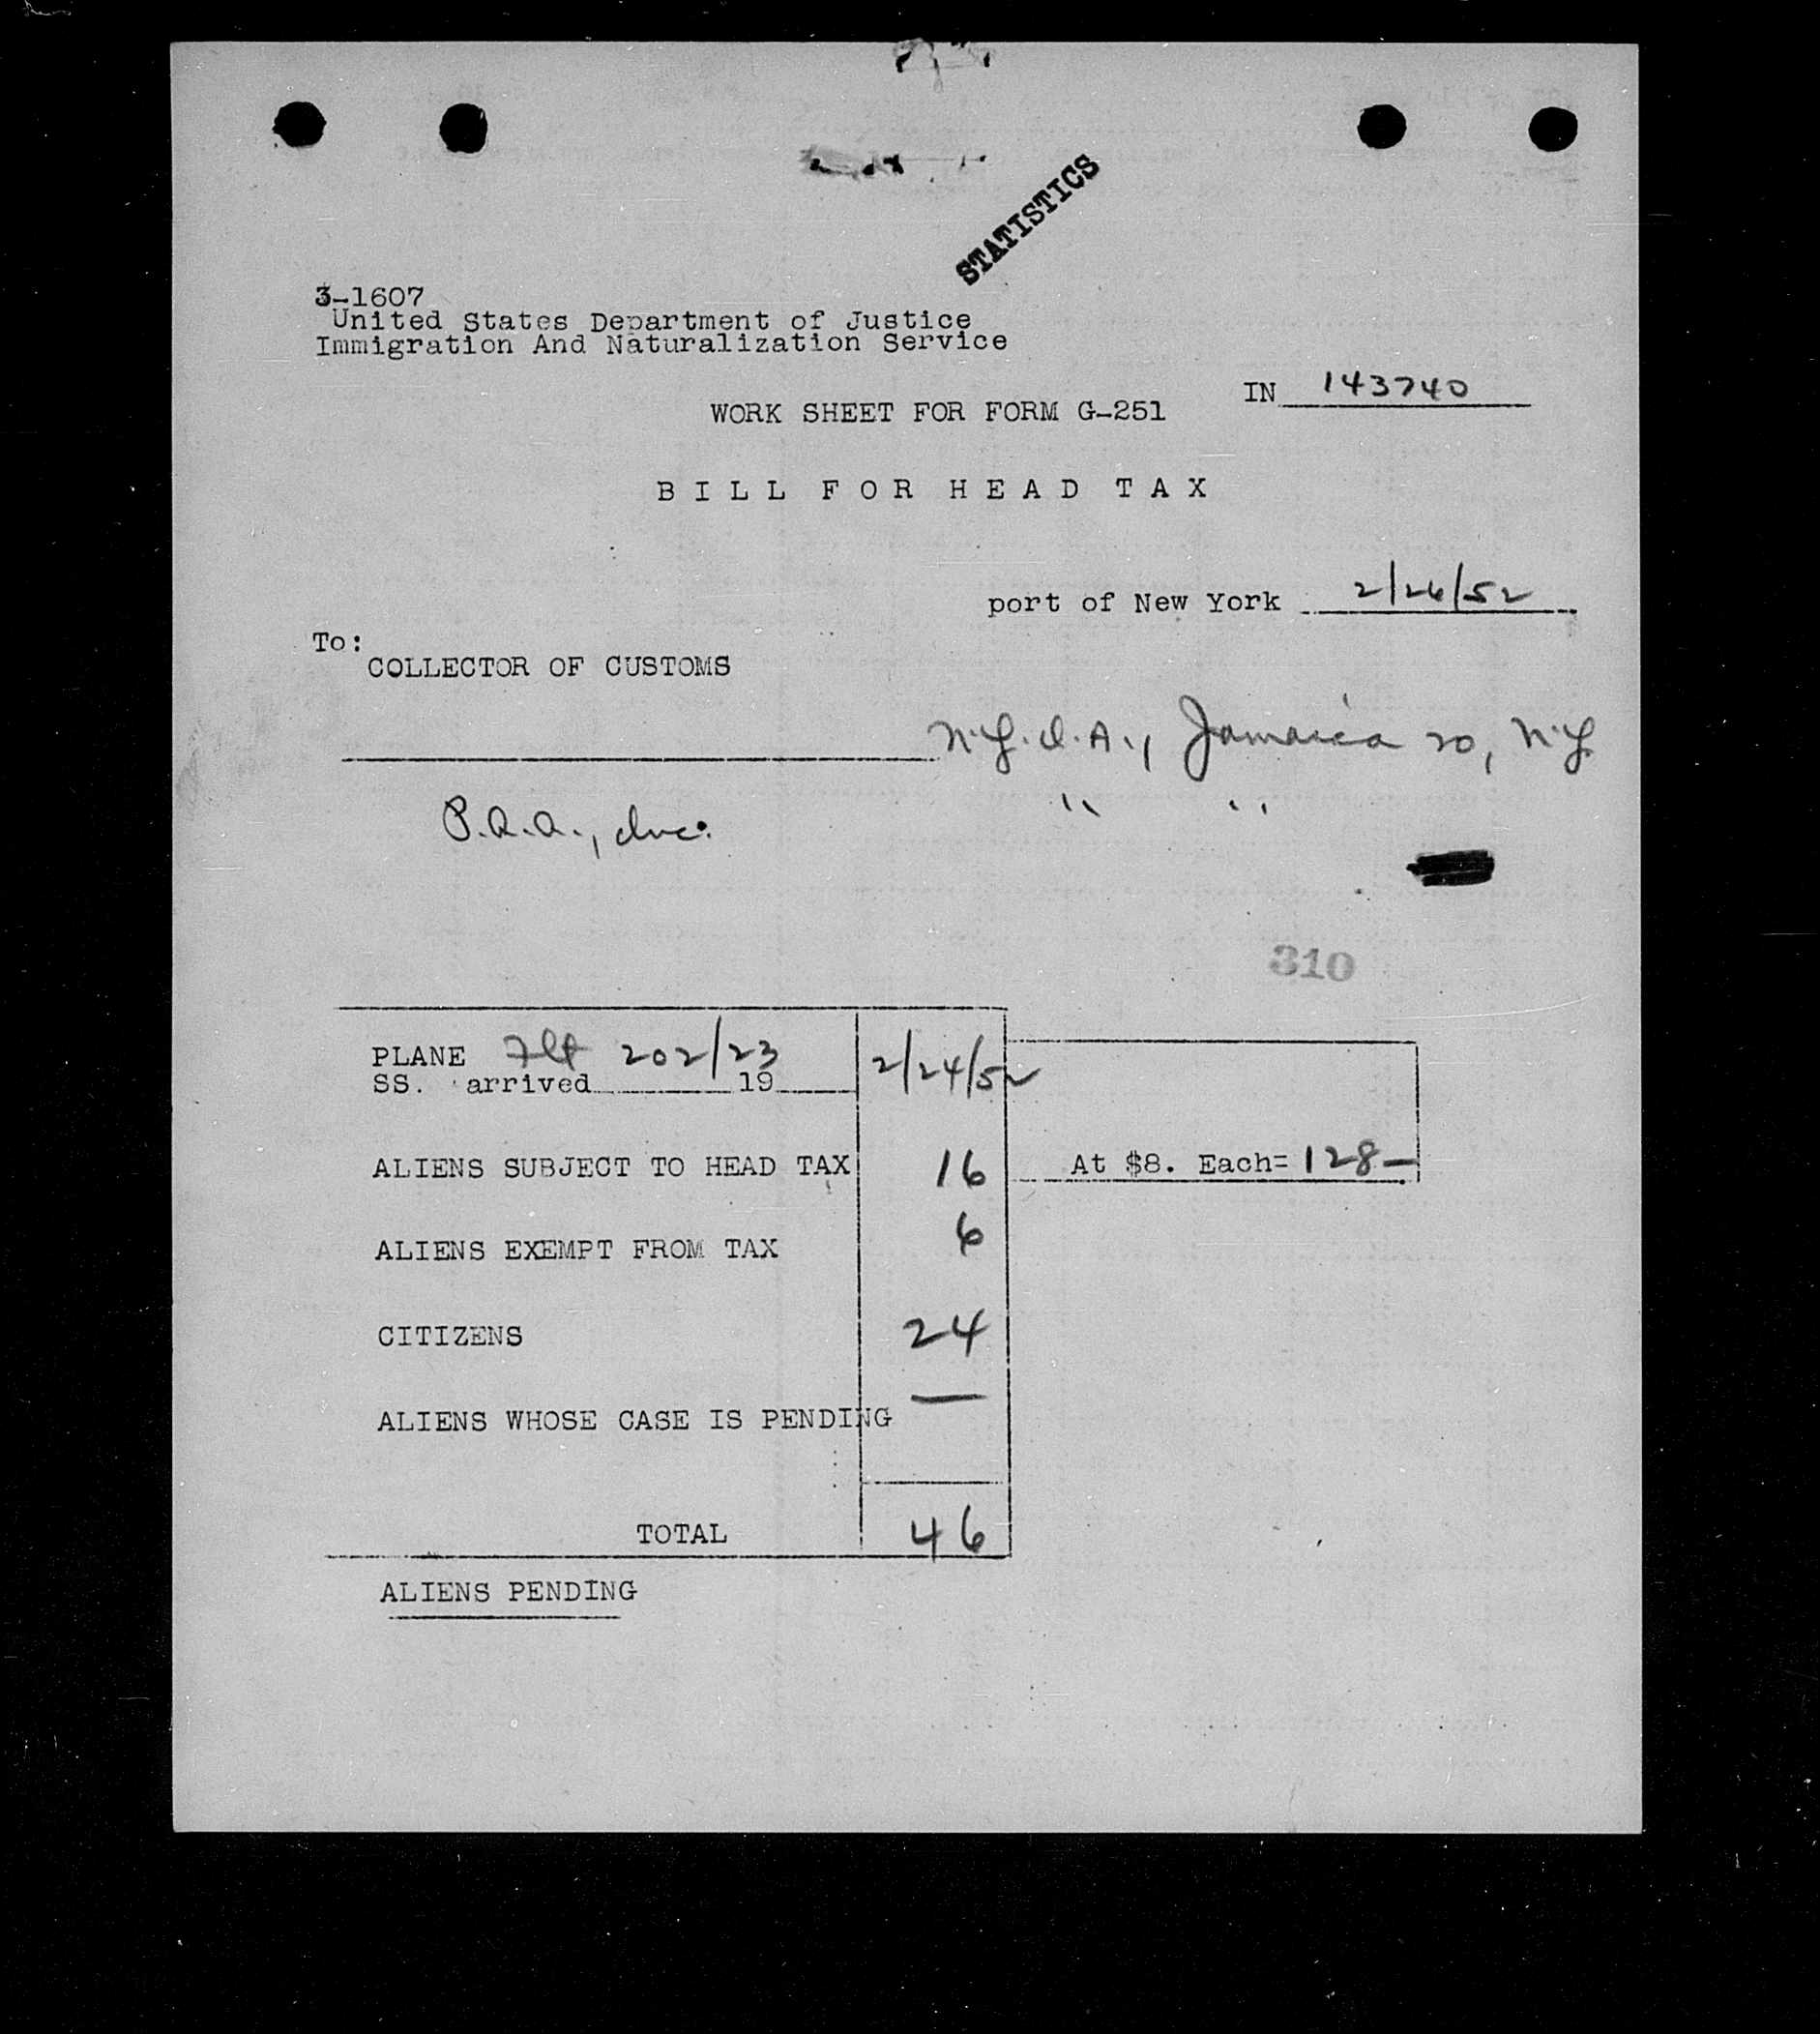 STATISTICS
3-1607
United States Department of Justice
Immigration And Naturalization Service
IN 143740
WORK SHEET FOR FORM G-251
BILL FOR HEAD TAX
port of New York 2/26/52
To:
COLLECTOR OF CUSTOMS
N.Y.I.A., Jamaica 20, N.Y.
P.A.A., Inc. " "
310
PLANE Flt 202/23 2/24/52
SS. arrived 19
ALIENS SUBJECT TO HEAD TAX 16 At $8. Each= 128—
ALIENS EXEMPT FROM TAX 6
CITIZENS 24
ALIENS WHOSE CASE IS PENDING —
TOTAL 46
ALIENS PENDING